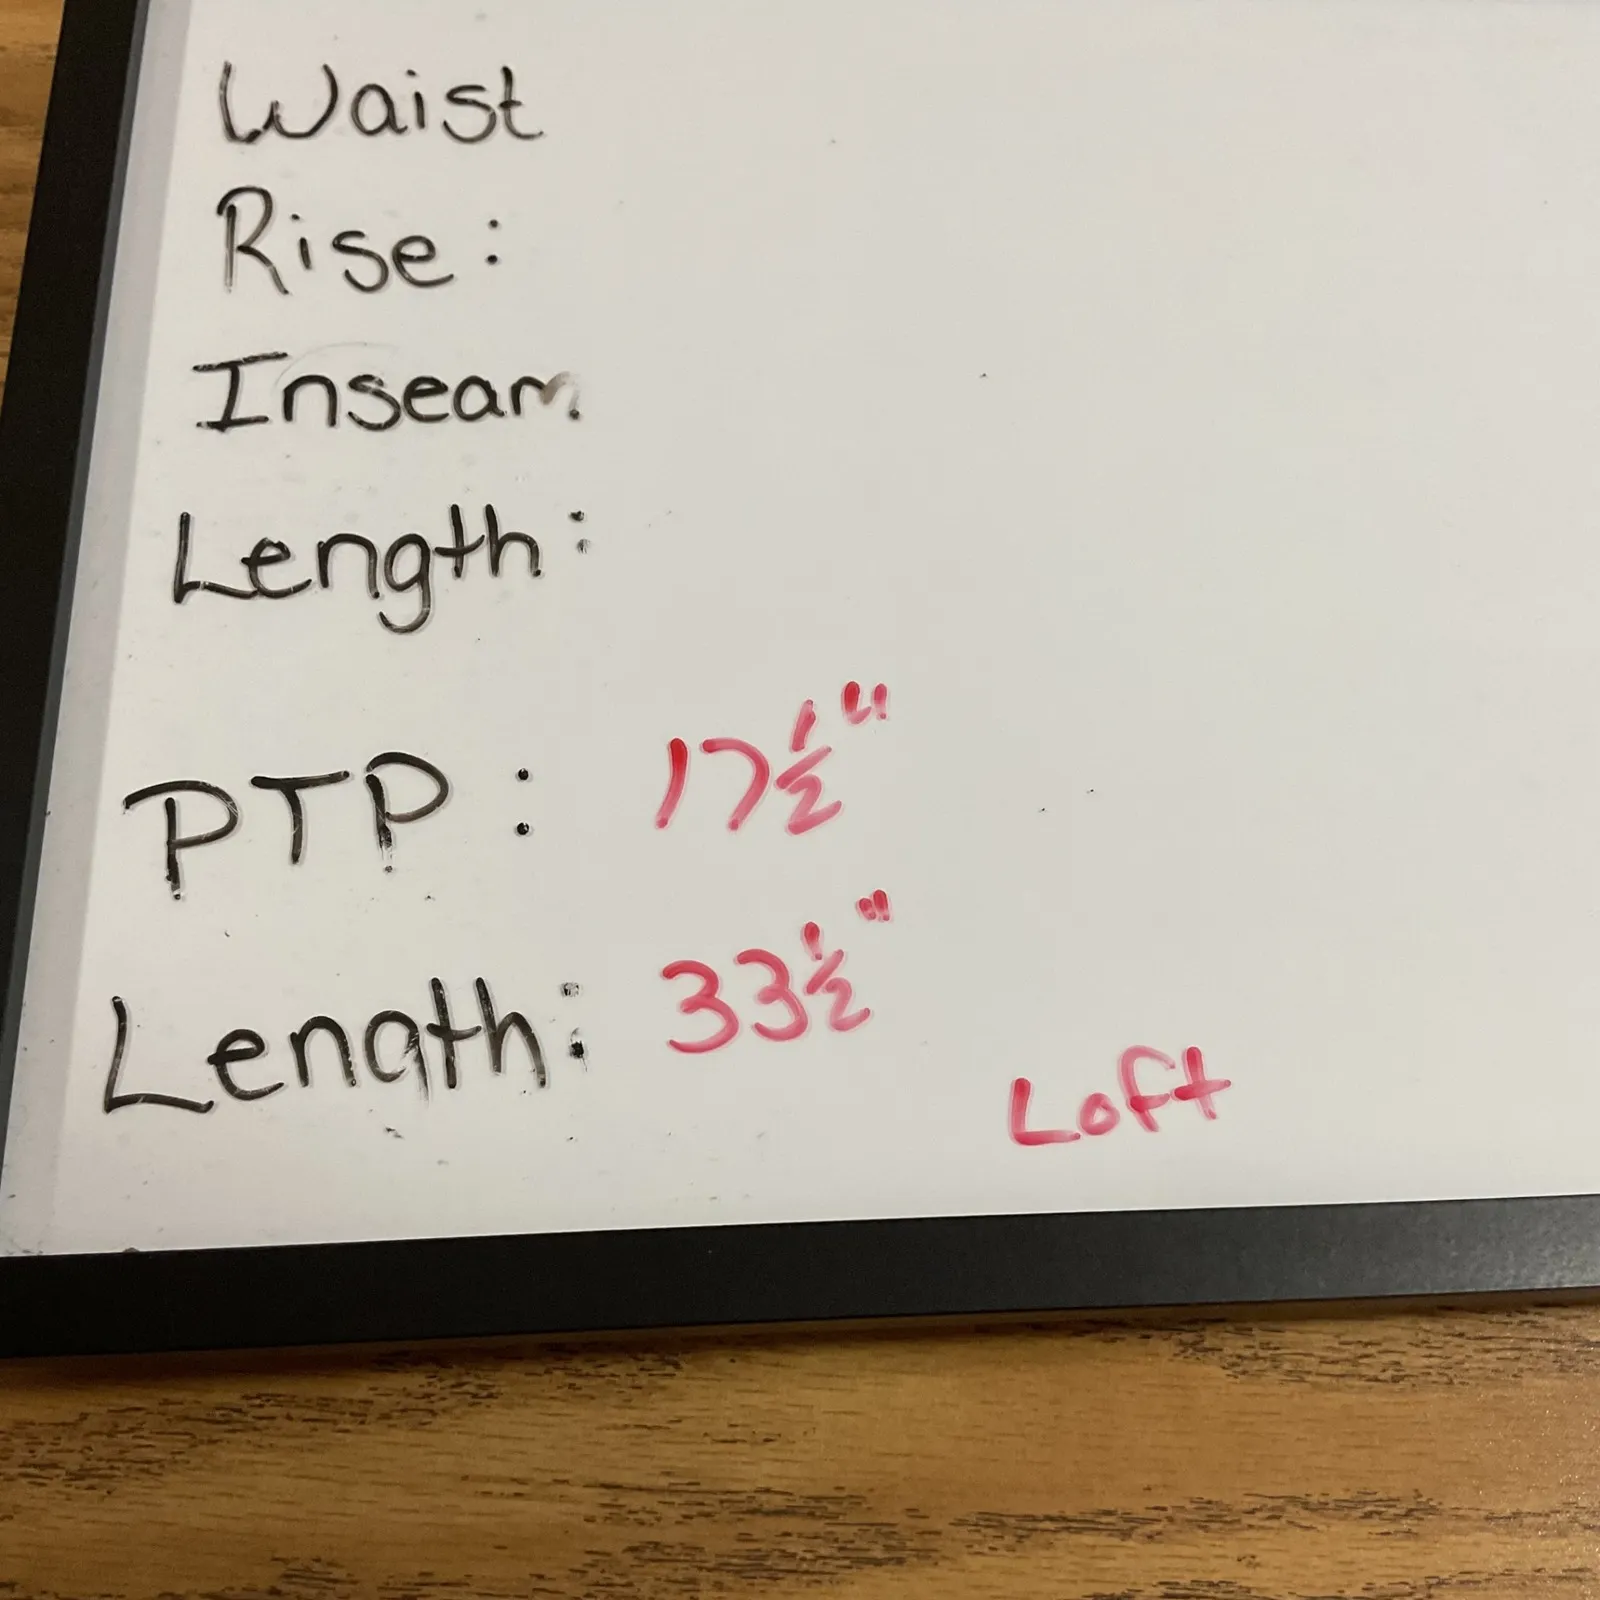 Waist
Rise:
Inseam
Length:
PTP: 17 1/2"
Length: 33 1/2"
Loft